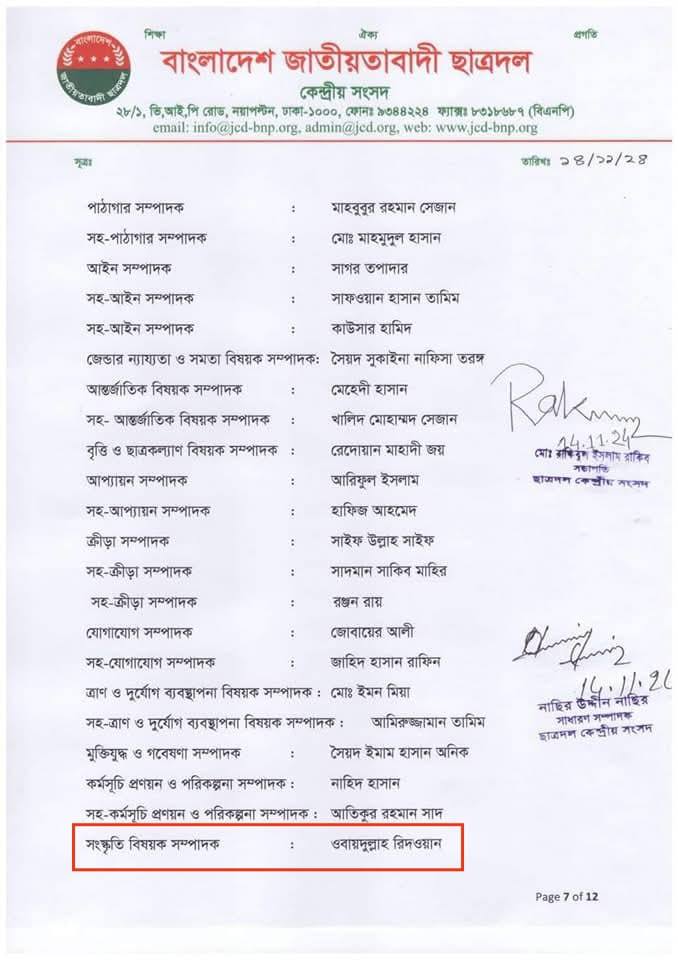 শিক্ষা ঐক্য প্রগতি
বাংলাদেশ জাতীয়তাবাদী ছাত্রদল
বাংলাদেশ
জাতীয়তাবাদী ছাত্রদল
কেন্দ্রীয় সংসদ
২৮/১, ভি,আই,পি রোড, নয়াপল্টন, ঢাকা-১০০০, ফোনঃ ৯৩৪৪২২৪ ফ্যাক্সঃ ৮৩১৮৬৮৭ (বিএনপি)
email: info@jcd-bnp.org, admin@jcd.org, web: www.jcd-bnp.org
সূত্রঃ তারিখঃ ১৪/১১/২৪
পাঠাগার সম্পাদক : মাহবুবুর রহমান সেজান
সহ-পাঠাগার সম্পাদক : মোঃ মাহমুদুল হাসান
আইন সম্পাদক : সাগর তপাদার
সহ-আইন সম্পাদক : সাফওয়ান হাসান তামিম
সহ-আইন সম্পাদক : কাউসার হামিদ
জেন্ডার ন্যায্যতা ও সমতা বিষয়ক সম্পাদক: সৈয়দ সুকাইনা নাফিসা তরঙ্গ
আন্তর্জাতিক বিষয়ক সম্পাদক : মেহেদী হাসান
সহ- আন্তর্জাতিক বিষয়ক সম্পাদক : খালিদ মোহাম্মদ সেজান
বৃত্তি ও ছাত্রকল্যাণ বিষয়ক সম্পাদক : রেদোয়ান মাহাদী জয়
আপ্যায়ন সম্পাদক : আরিফুল ইসলাম
সহ-আপ্যায়ন সম্পাদক : হাফিজ আহমেদ
ক্রীড়া সম্পাদক : সাইফ উল্লাহ সাইফ
সহ-ক্রীড়া সম্পাদক : সাদমান সাকিব মাহির
সহ-ক্রীড়া সম্পাদক : রঞ্জন রায়
যোগাযোগ সম্পাদক : জোবায়ের আলী
সহ-যোগাযোগ সম্পাদক : জাহিদ হাসান রাফিন
ত্রাণ ও দুর্যোগ ব্যবস্থাপনা বিষয়ক সম্পাদক : মোঃ ইমন মিয়া
সহ-ত্রাণ ও দুর্যোগ ব্যবস্থাপনা বিষয়ক সম্পাদক : আমিরুজ্জামান তামিম
মুক্তিযুদ্ধ ও গবেষণা সম্পাদক : সৈয়দ ইমাম হাসান অনিক
কর্মসূচি প্রণয়ন ও পরিকল্পনা সম্পাদক : নাহিদ হাসান
সহ-কর্মসূচি প্রণয়ন ও পরিকল্পনা সম্পাদক : আতিকুর রহমান সাদ
সংস্কৃতি বিষয়ক সম্পাদক : ওবায়দুল্লাহ রিদওয়ান
14.11.24
মোঃ রাকিবুল ইসলাম রাকিব
সভাপতি
ছাত্রদল কেন্দ্রীয় সংসদ
14.11.24
নাছির উদ্দীন নাছির
সাধারণ সম্পাদক
ছাত্রদল কেন্দ্রীয় সংসদ
Page 7 of 12